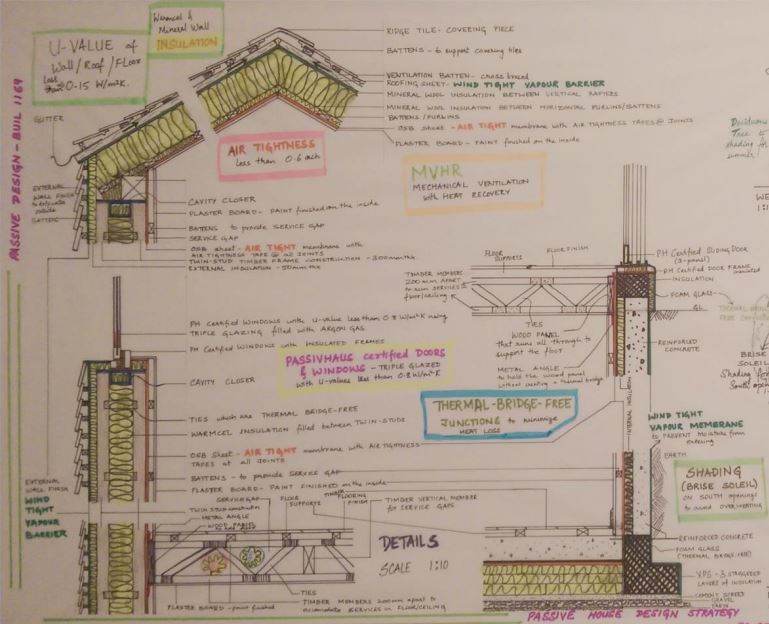 Warmcel &
Mineral Wool
INSULATION
U-VALUE of
Wall/Roof/Floor
Less than 0.15 W/m²K.
PASSIVE DESIGN - BUIL 1169
GUTTER
EXTERNAL
WALL FINISH
BATTENS
RIDGE TILE - COVERING PIECE
BATTENS - to support covering tiles
VENTILATION BATTEN - cross braced
ROOFING SHEET - WIND TIGHT VAPOUR BARRIER
MINERAL WOOL INSULATION BETWEEN VERTICAL RAFTERS
MINERAL WOOL INSULATION BETWEEN HORIZONTAL PURLINS/BATTENS
BATTENS / PURLINS
OSB Sheet - AIR TIGHT membrane with AIR TIGHTNESS TAPES @ JOINTS
PLASTER BOARD - PAINT finished on the inside
AIR TIGHTNESS
Less than 0.6 ach
MVHR
MECHANICAL VENTILATION
with HEAT RECOVERY
CAVITY CLOSER
PLASTER BOARD - PAINT finished on the inside
BATTENS to provide SERVICE GAP
SERVICE GAP
OSB sheet - AIR TIGHT membrane with
AIR TIGHTNESS TAPE @ all JOINTS
TWIN-STUD TIMBER FRAME CONSTRUCTION - 300mm thk
EXTERNAL INSULATION - 50mm thk
FLOOR
SUPPORTS
FLOOR FINISH
TIMBER MEMBERS
200 mm APART
to run SERVICES
floor/ceiling
TIES
WOOD PANEL
that runs all through to
support the floor
METAL ANGLE
to hold the wood panel
without creating a thermal bridge
PH Certified SLIDING DOOR
(3-panel)
PH Certified DOOR FRAME
insulated
INSULATION
FOAM GLASS
GL
REINFORCED
CONCRETE
PH CERTIFIED WINDOWS with U-value less than 0.8 W/m²K using
TRIPLE GLAZING filled with ARGON GAS
PH Certified WINDOWS with INSULATED FRAMES
PASSIVHAUS certified DOORS
& WINDOWS - TRIPLE GLAZED
with U-values less than 0.8 W/m²K
CAVITY CLOSER
TIES which are THERMAL BRIDGE-FREE
WARMCEL INSULATION filled between TWIN-STUDS
OSB Sheet - AIR TIGHT membrane with AIR TIGHTNESS
TAPES at all JOINTS
BATTENS - to provide SERVICE GAP
PLASTER BOARD - PAINT FINISHED on the inside
THERMAL-BRIDGE-FREE
JUNCTIONS to minimize
HEAT LOSS
INTERNAL INSULATION
WIND TIGHT
VAPOUR MEMBRANE
to PREVENT Moisture from
entering
EARTH
SHADING
(BRISE SOLEIL)
on SOUTH openings
to avoid OVERHEATING
EXTERNAL
WALL FINISH
WIND
TIGHT
VAPOUR
BARRIER
SERVICE GAP
TWIN STUD construction
METAL ANGLE
WOOD PANEL
FLOOR
SUPPORTS
FLOORING
FINISH
TIMBER VERTICAL MEMBER
for SERVICE GAPS
DETAILS
SCALE 1:10
TIES
TIMBER MEMBERS 200mm apart to
accomodate SERVICES in FLOOR/CEILING
PLASTER BOARD - paint finished
REINFORCED CONCRETE
FOAM GLASS
(THERMAL BRIDGE FREE)
XPS - 3 STAGGERED
LAYERS of INSULATION
CEMENT SCREED
GRAVEL
EARTH
PASSIVE HOUSE DESIGN STRATEGY
Deciduous
Tree to
shading for
summer
BRISE
SOLEIL
Shading for
South